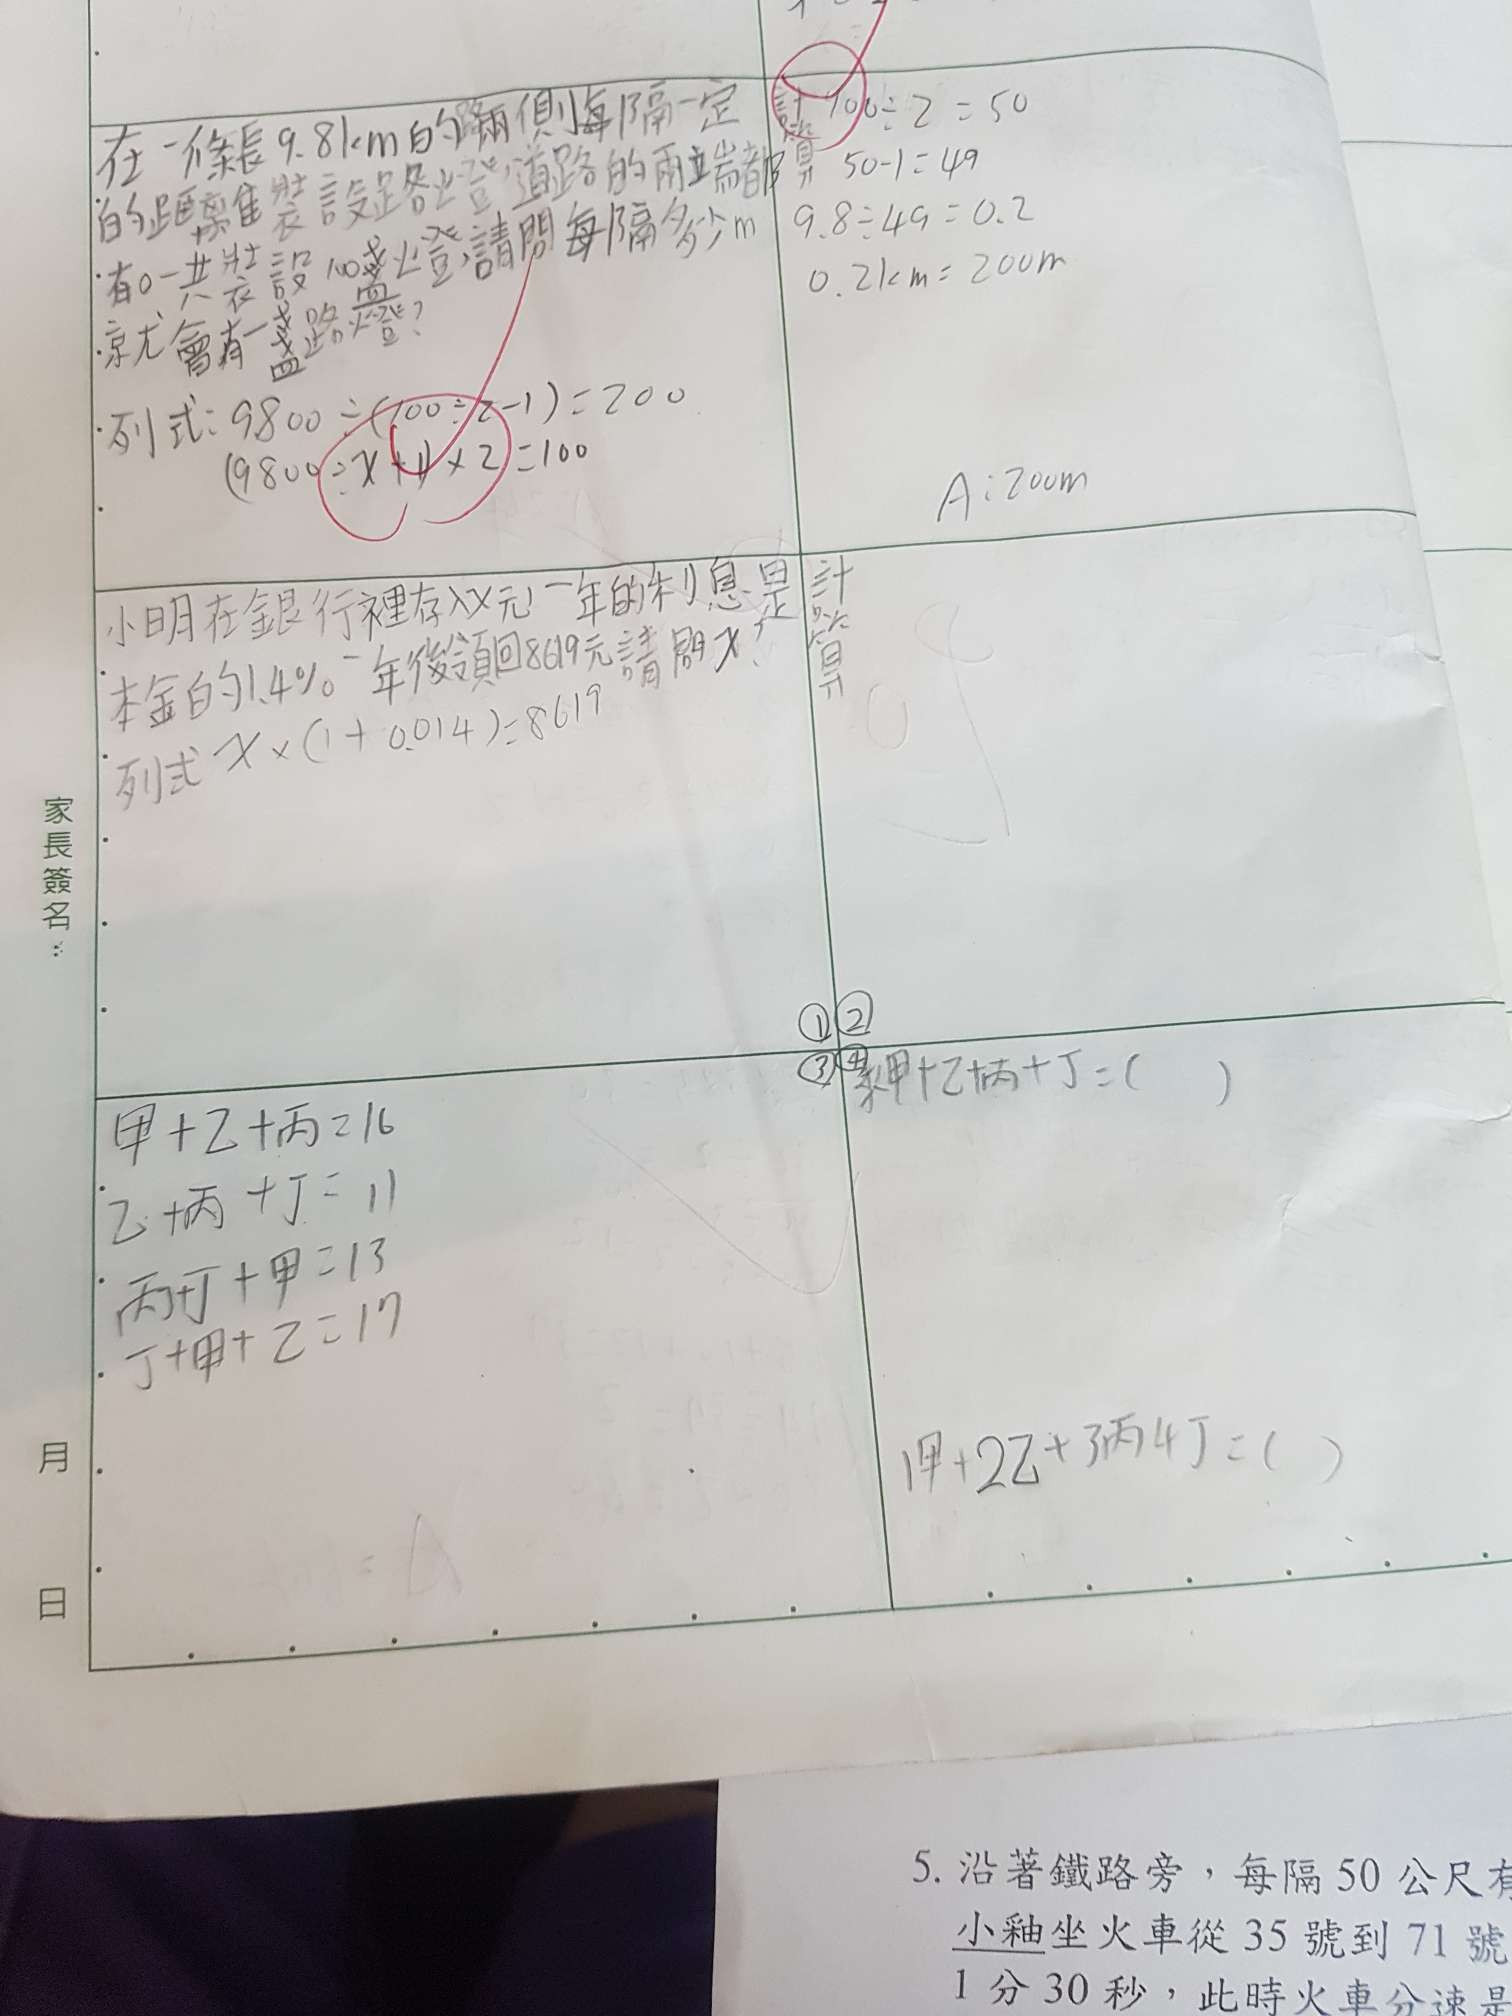 在一條長9.8km的路兩側,每隔一定
的距離裝設路燈,道路的兩端都
有。一共裝設100盞燈,請問每隔多少m
就會有一盞路燈?
列式:9800÷(100÷2-1)=200
(9800÷x+1)×2=100
計算 100÷2=50
50-1=49
9.8÷49=0.2
0.2km=200m
A:200m
小明在銀行裡存入X元,一年的利息是
本金的1.4%一年後領回8619元請問x?
列式 x×(1+0.014)=8619
計算
家長簽名:
① ②
③ ④
甲+乙+丙=16
乙+丙+丁=11
丙+丁+甲=13
丁+甲+乙=17
求甲+乙+丙+丁=( )
1甲+2乙+3丙4丁=( )
月
日
5. 沿著鐵路旁,每隔50公尺有
小釉坐火車從35號到71號
1分30秒,此時火車分速是